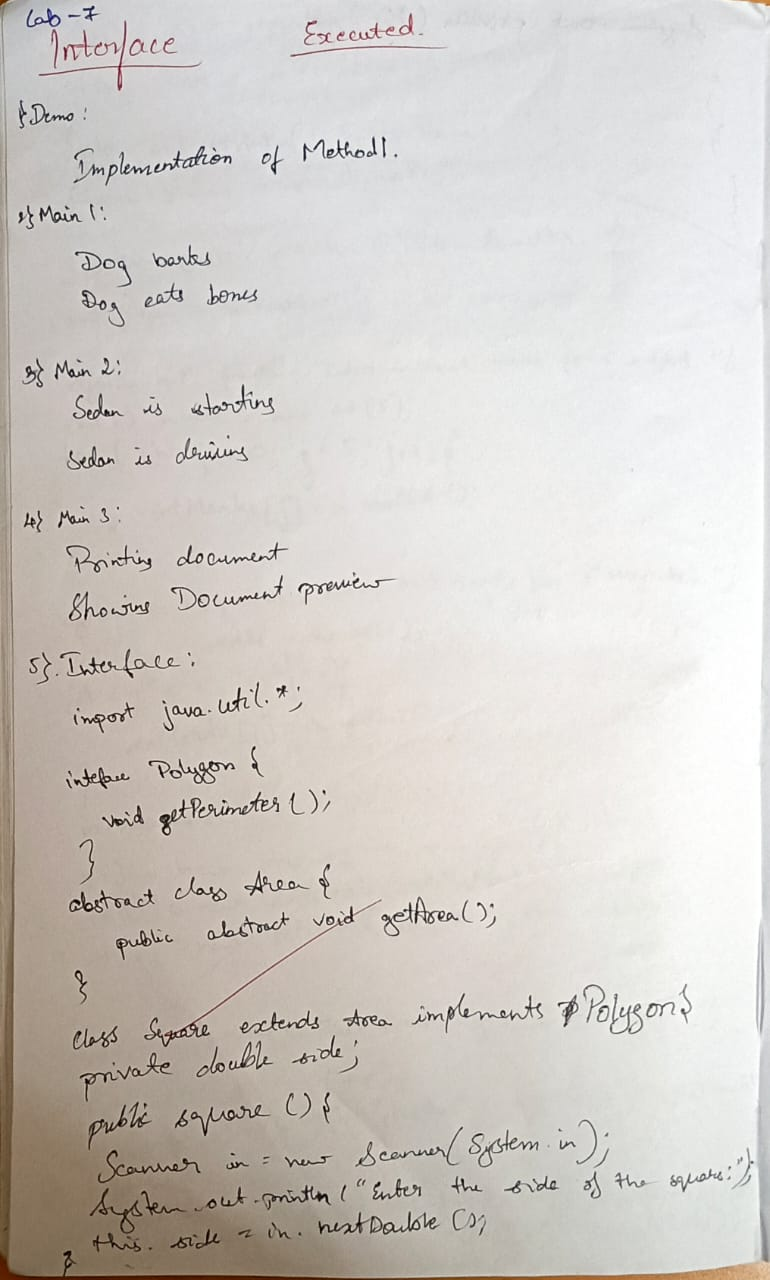 Lab-7
Interface Executed.
} Demo:
Implementation of Method1.
2} Main 1:
Dog barks
Dog eats bones
3} Main 2:
Sedan is starting
Sedan is driving
4} Main 3:
Printing document
Showing Document preview
5}. Interface:
import java.util.*;
inteface Polygon {
void getPerimeter();
}
abstract class Area {
public abstract void getArea();
}
class Square extends Area implements Polygon{
private double side;
public square () {
Scanner in = new Scanner(System.in);
System.out.println("Enter the side of the square:");
this.side = in.nextDouble();
}